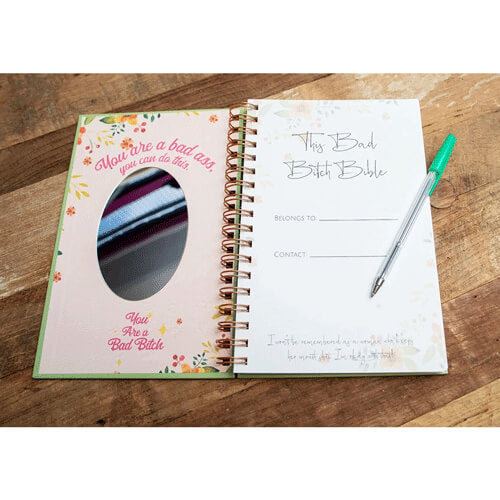 You are a bad ass,
you can do this.
You
Are a
Bad Bitch
This Bad
Bitch Bible
BELONGS TO:
CONTACT:
I won't be remembered as a woman who keeps
her mouth shut. I'm okay with that!